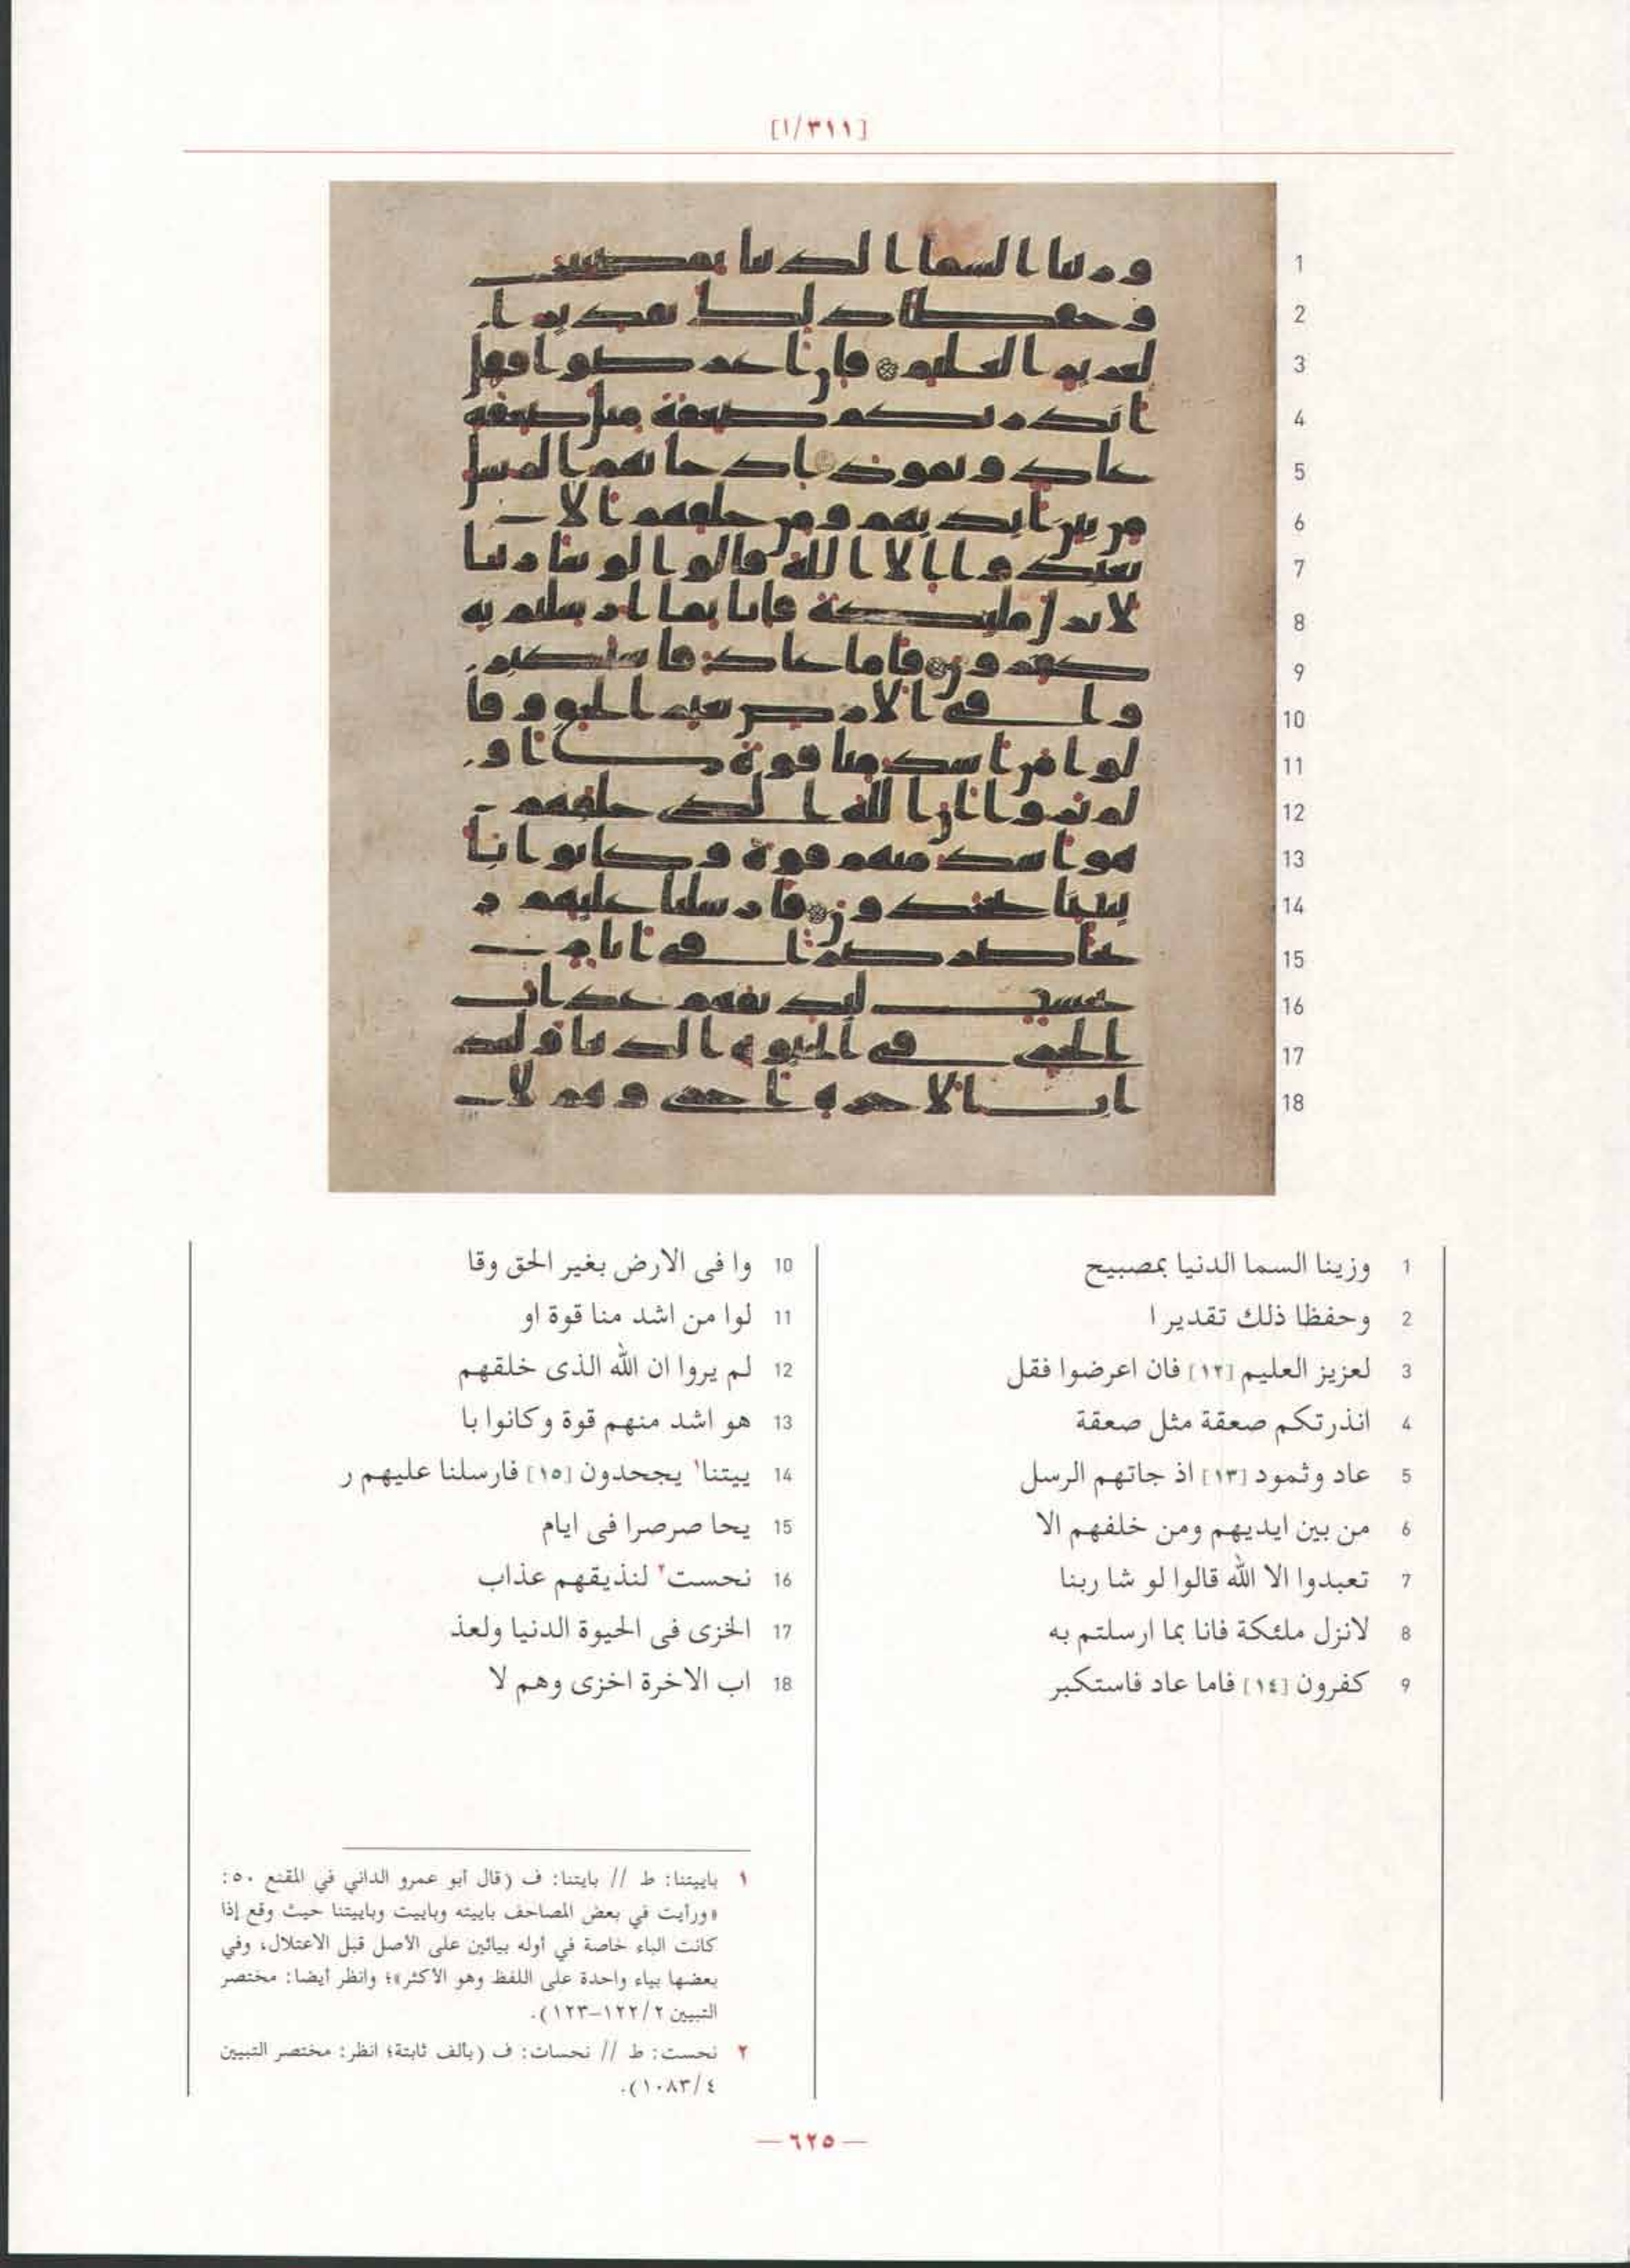 [١/٣١١]
1 وزينا السما الدنيا بمصبيح
2 وحفظا ذلك تقدير ا
3 لعزيز العليم [١٢] فان اعرضوا فقل
4 انذرتكم صعقة مثل صعقة
5 عاد وثمود [١٣] اذ جاتهم الرسل
6 من بين ايديهم ومن خلفهم الا
7 تعبدوا الا الله قالوا لو شا ربنا
8 لانزل ملئكة فانا بما ارسلتم به
9 كفرون [١٤] فاما عاد فاستكبر
10 وا فى الارض بغير الحق وقا
11 لوا من اشد منا قوة او
12 لم يروا ان الله الذى خلقهم
13 هو اشد منهم قوة وكانوا با
14 ييتنا١ يجحدون [١٥] فارسلنا عليهم ر
15 يحا صرصرا فى ايام
16 نحست٢ لنذيقهم عذاب
17 الخزى فى الحيوة الدنيا ولعذ
18 اب الاخرة اخزى وهم لا
١ باييتنا: ط // بايتنا: ف (قال أبو عمرو الداني في المقنع ٥٠:
«ورأيت في بعض المصاحف باييته وباييت وباييتنا حيث وقع إذا
كانت الباء خاصة في أوله بيائين على الأصل قبل الاعتلال، وفي
بعضها بياء واحدة على اللفظ وهو الأكثر»؛ وانظر أيضا: مختصر
التبيين ١٢٢/٢–١٢٣).
٢ نحست: ط // نحسات: ف (بألف ثابتة؛ انظر: مختصر التبيين
١٠٨٣/٤).
— ٦٢٥ —